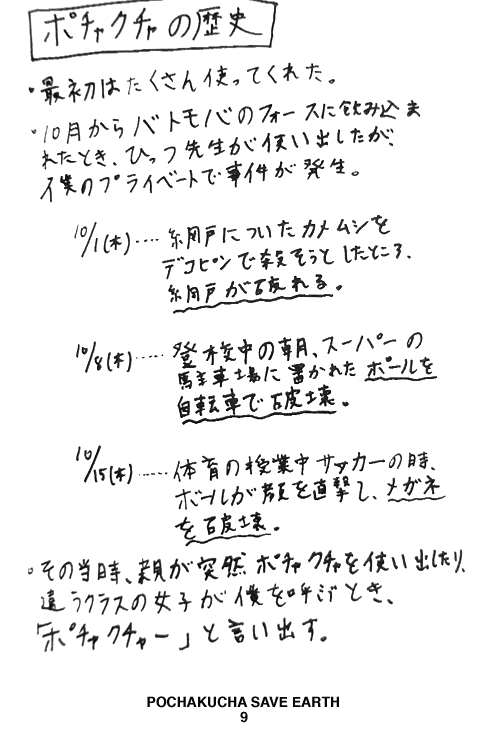 ポチャクチャの歴史
・最初はたくさん使ってくれた。
・10月からバトモバのフォースに飲み込ま
れたとき、ひっつ先生が使い出したが、
僕のプライベートで事件が発生。
10/1(木)‥‥網戸についたカメムシを
デコピンで殺そうとしたところ、
網戸が破れる。
10/8(木)‥‥‥登校中の朝、スーパーの
駐車場に置かれたポールを
自転車で破壊。
10/15(木)‥‥‥体育の授業中サッカーの時、
ボールが顔を直撃し、メガネ
を破壊。
・その当時、親が突然ポチャクチャを使い出したり、
違うクラスの女子が僕を呼ぶとき、
「ポチャクチャー」と言い出す。
POCHAKUCHA SAVE EARTH
9